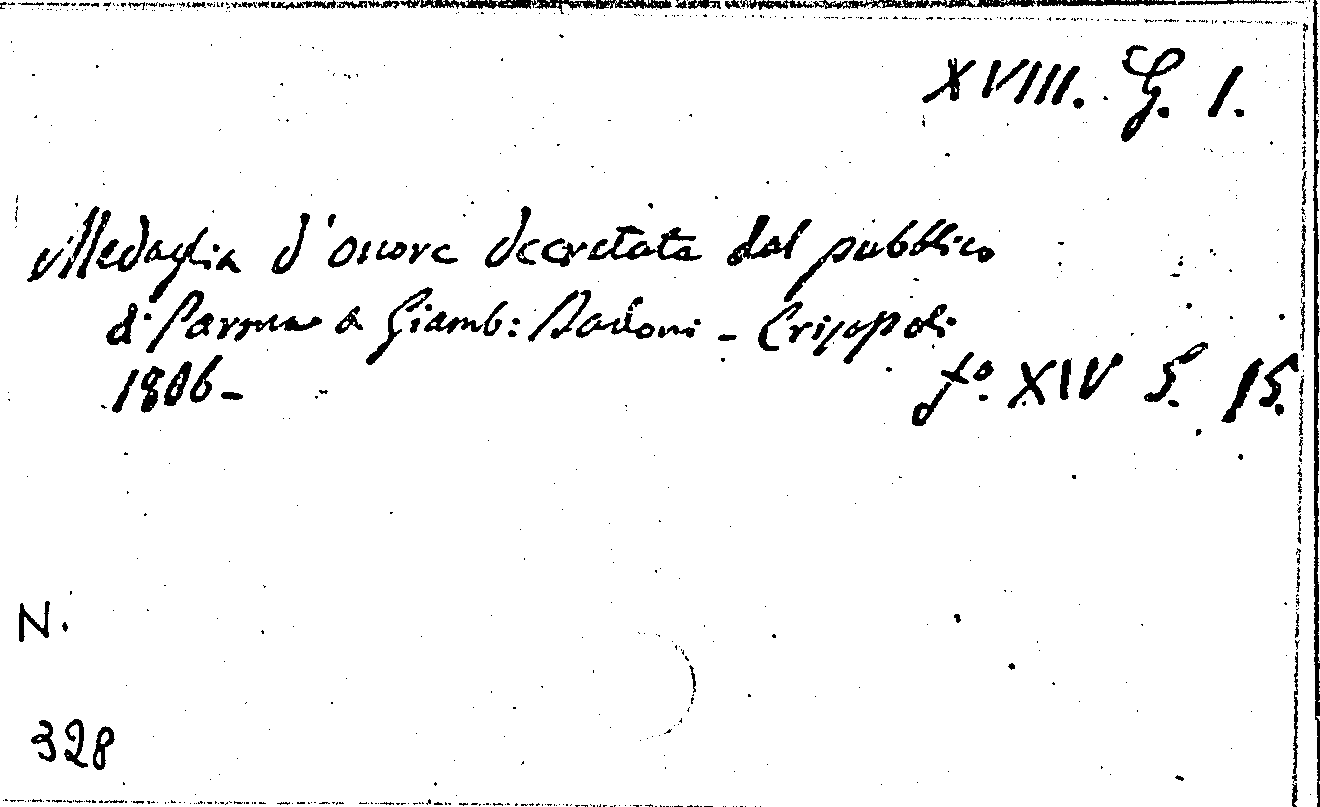 XVIII. G. 1.
Medaglia d'onore decretata dal pubblico
di Parma a Giamb: Bodoni - Crisopoli
1806-
fº. XIV G. 15.
N.
328